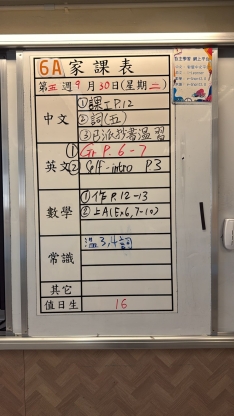 6A 家課表
第五週9月30日(星期二)
中文
①課工P.12
②詞(五)
③已派教書溫習
英文
① Gr P.6-7
(2) Self-intro P3
數學
①作P.12-13
②上A(Ex6,7-10)
常識
溫3,4詞
其它
值日生 16